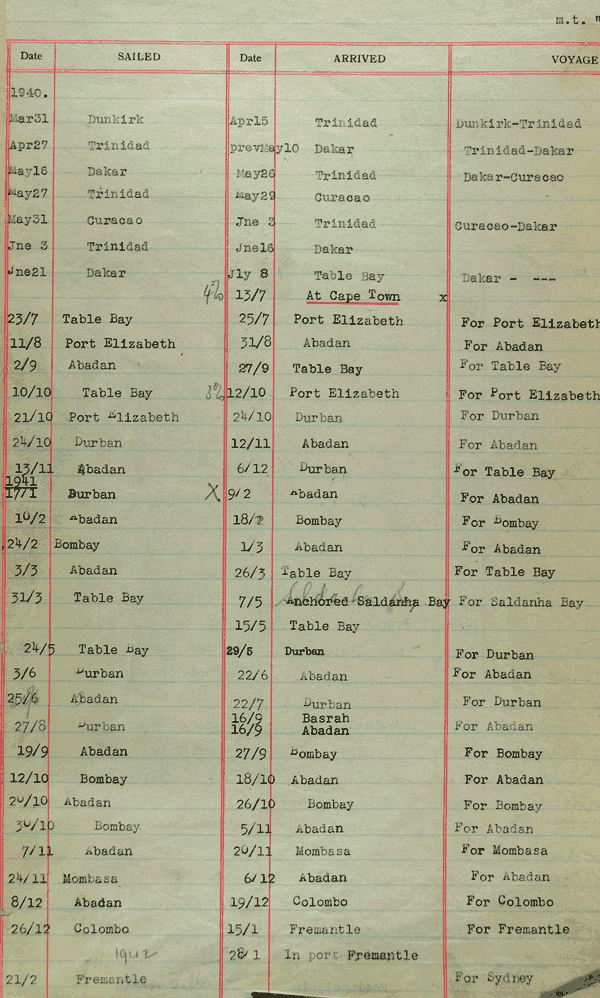 m.t.
Date SAILED Date ARRIVED VOYAGE
1940.
Mar31 Dunkirk Apr15 Trinidad Dunkirk-Trinidad
Apr27 Trinidad prevMay10 Dakar Trinidad-Dakar
May16 Dakar May26 Trinidad Dakar-Curacao
May27 Trinidad May29 Curacao
May31 Curacao Jne 3 Trinidad Curacao-Dakar
Jne 3 Trinidad Jne16 Dakar
Jne21 Dakar Jly 8 Table Bay Dakar - ---
13/7 At Cape Town x
23/7 Table Bay 25/7 Port Elizabeth For Port Elizabeth
11/8 Port Elizabeth 31/8 Abadan For Abadan
2/9 Abadan 27/9 Table Bay For Table Bay
10/10 Table Bay 12/10 Port Elizabeth For Port Elizabeth
21/10 Port Elizabeth 24/10 Durban For Durban
24/10 Durban 12/11 Abadan For Abadan
13/11 Abadan 6/12 Durban For Table Bay
1941
17/1 Durban X 9/2 Abadan For Abadan
10/2 Abadan 18/2 Bombay For Bombay
24/2 Bombay 1/3 Abadan For Abadan
3/3 Abadan 26/3 Table Bay For Table Bay
31/3 Table Bay 7/5 Anchored Saldanha Bay For Saldanha Bay
15/5 Table Bay
24/5 Table Bay 29/5 Durban For Durban
3/6 Durban 22/6 Abadan For Abadan
25/6 Abadan 22/7 Durban For Durban
16/9 Basrah
27/8 Durban 16/9 Abadan For Abadan
19/9 Abadan 27/9 Bombay For Bombay
12/10 Bombay 18/10 Abadan For Abadan
20/10 Abadan 26/10 Bombay For Bombay
30/10 Bombay 5/11 Abadan For Abadan
7/11 Abadan 20/11 Mombasa For Mombasa
24/11 Mombasa 6/12 Abadan For Abadan
8/12 Abadan 19/12 Colombo For Colombo
26/12 Colombo 15/1 Fremantle For Fremantle
1942 28/1 In port Fremantle
21/2 Fremantle For Sydney